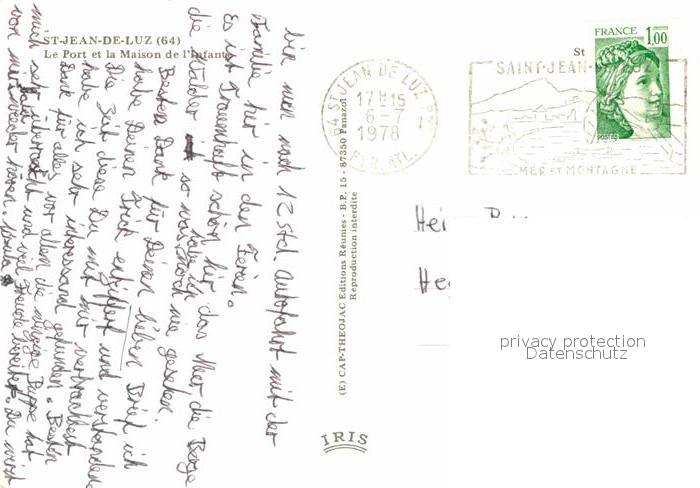 ST-JEAN-DE-LUZ (64)
Le Port et la Maison de l'Infante
bin nach 12 Std. Autofahrt mit der
Familie hier in den Ferien.
Es ist Traumhaft schön hir
die Wälder das Mer die Berge
so was noch nie gesehen.
Besten Dank für Deinen lieben Brief ich
habe Deinen Brief entziffert und verstanden
Die Zeit diese Du mit mir verbrachtest
habe ich sehr interessand gefunden. Besten
Dank für alles vor allem die Puppe hat
mich sehr überrascht und viel Freude bereitet. Du wirst
von mir bald wieder hören.
(E) CAP-THEOJAC Editions Réunies - B.P. 15 - 87350 Panazol
Reproduction interdite
IRIS
64 ST JEAN DE LUZ
17H15
6-7
1978
PYR. ATL.
St
SAINT-JEAN-
MER ET MONTAGNE
FRANCE
1,00
POSTES
privacy protection
Datenschutz